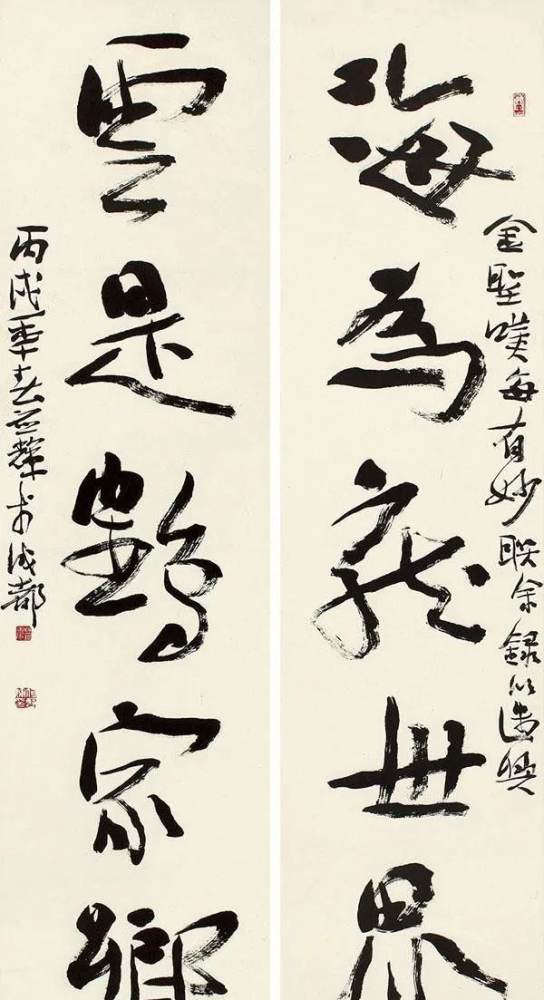 金聖嘆每有妙联余録以遣興
海為龍世界
雲是鶴家鄉
丙戌季春应輝於成都